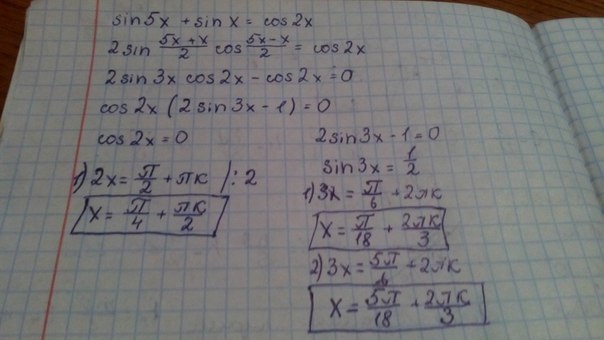 sin5x + sinx = cos2x
2sin (5x+x)/2 cos (5x-x)/2 = cos2x
2sin3x cos2x - cos2x = 0
cos2x (2sin3x - 1) = 0
cos2x = 0
1) 2x = π/2 + πк /: 2
x = π/4 + πк/2
2sin3x - 1 = 0
sin3x = 1/2
1) 3x = π/6 + 2πк
x = π/18 + 2πк/3
2) 3x = 5π/6 + 2πк
x = 5π/18 + 2πк/3